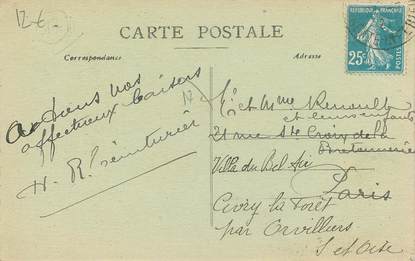 12-6
CARTE POSTALE
Correspondance
Adresse
REPUBLIQUE FRANÇAISE
25c
POSTES
nos
affectueux baisers
H. R.
Mr et Mme Renoult
et leurs enfants
21 rue Ste Croix de la
Bretonnerie
Villa du Bel Air
Paris
Civry la Foret
par Orvilliers
S et Oise